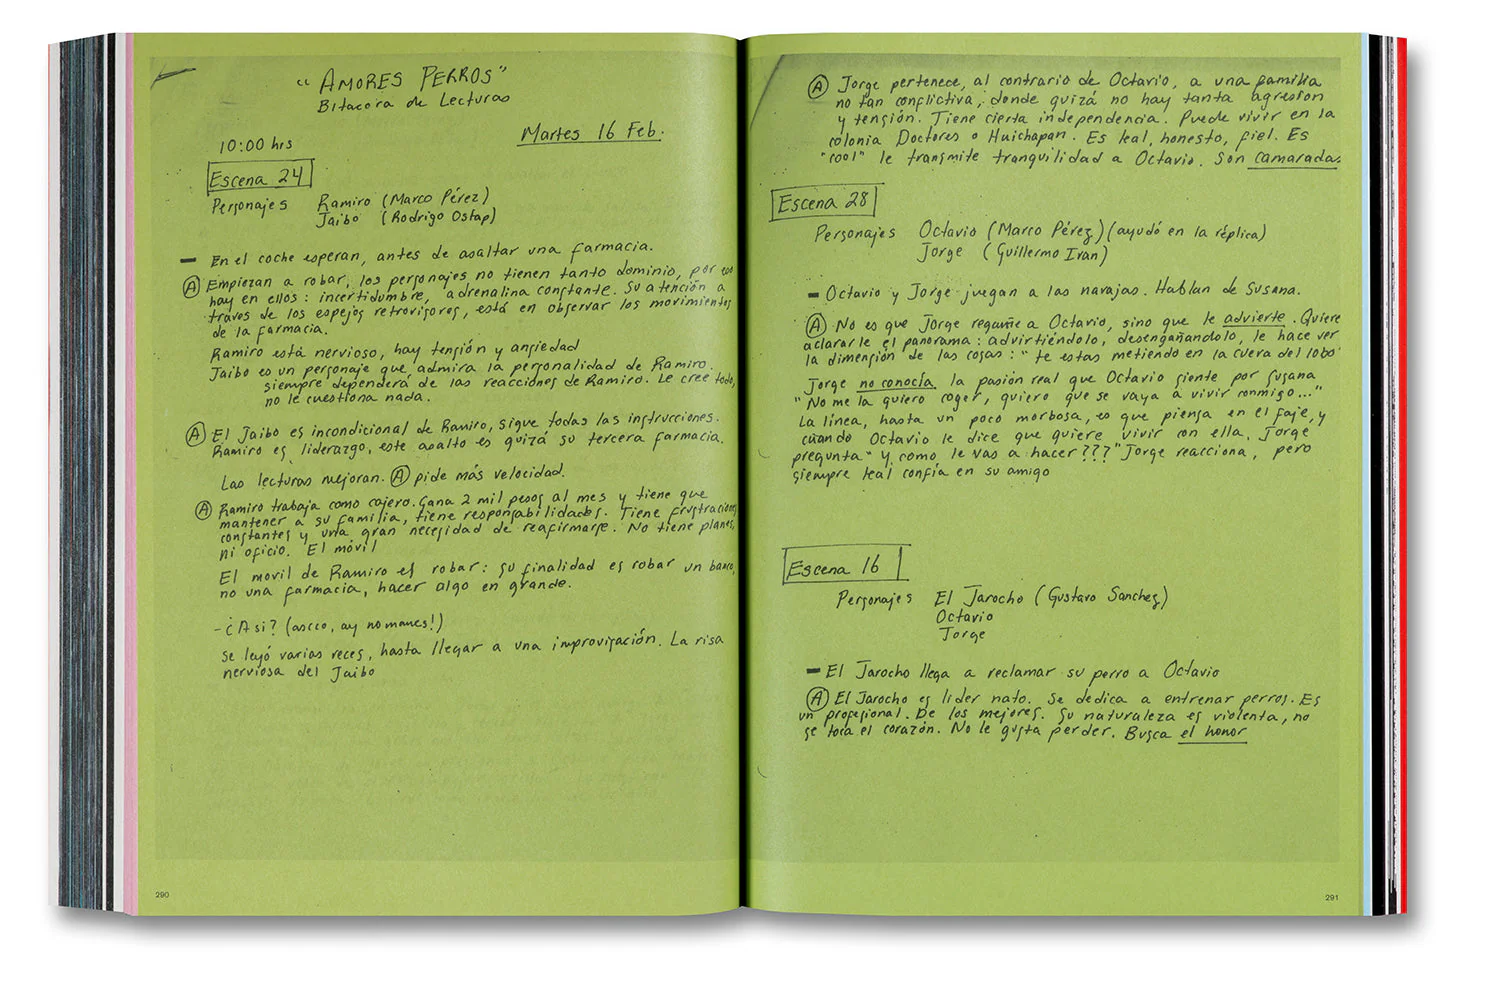 "AMORES PERROS"
Bitacora de Lecturas
Martes 16 Feb.
10:00 hrs
Escena 24
Personajes Ramiro (Marco Pérez)
Jaibo (Rodrigo Ostap)
- En el coche esperan, antes de asaltar una farmacia.
(A) Empiezan a robar, los personajes no tienen tanto dominio, por eso
hay en ellos: incertidumbre, adrenalina constante. Su atención a
través de los espejos retrovisores, está en observar los movimientos
de la farmacia.
Ramiro está nervioso, hay tensión y ansiedad
Jaibo es un personaje que admira la personalidad de Ramiro.
siempre dependerá de las reacciones de Ramiro. Le cree todo,
no le cuestiona nada.
(A) El Jaibo es incondicional de Ramiro, sigue todas las instrucciones.
Ramiro es liderazgo, este asalto es quizá su tercera farmacia.
Las lecturas mejoran. (A) pide más velocidad.
(A) Ramiro trabaja como cajero. Gana 2 mil pesos al mes y tiene que
mantener a su familia, tiene responsabilidades. Tiene frustraciones
constantes y una gran necesidad de reafirmarse. No tiene planes,
ni oficio. El móvil
El movil de Ramiro es robar: su finalidad es robar un banco,
no una farmacia, hacer algo en grande.
- ¿A si? (ascco, ay no manes!)
Se leyó varias veces, hasta llegar a una improvisación. La risa
nerviosa del Jaibo
290
(A) Jorge pertenece, al contrario de Octavio, a una familia
no tan conflictiva, donde quizá no hay tanta agresion
y tensión. Tiene cierta independencia. Puede vivir en la
colonia Doctores o Huichapan. Es leal, honesto, fiel. Es
"cool" le transmite tranquilidad a Octavio. Son camaradas.
Escena 28
Personajes Octavio (Marco Pérez) (ayudó en la réplica)
Jorge (Guillermo Ivan)
- Octavio y Jorge juegan a las navajas. Hablan de Susana.
(A) No es que Jorge regañe a Octavio, sino que le advierte. Quiere
aclararle el panorama: advirtiéndolo, desengañandolo, le hace ver
la dimensión de las cosas: "te estas metiendo en la cueva del lobo"
Jorge no conocía la pasión real que Octavio siente por Susana
"No me la quiero coger, quiero que se vaya a vivir conmigo..."
La línea, hasta un poco morbosa, es que piensa en el faje, y
cuando Octavio le dice que quiere vivir con ella, Jorge
pregunta "y como le vas a hacer???" Jorge reacciona, pero
siempre leal confía en su amigo
Escena 16
Personajes El Jarocho (Gustavo Sanchez)
Octavio
Jorge
- El Jarocho llega a reclamar su perro a Octavio
(A) El Jarocho es lider nato. Se dedica a entrenar perros. Es
un profesional. De los mejores. Su naturaleza es violenta, no
se toca el corazón. No le gusta perder. Busca el honor
291